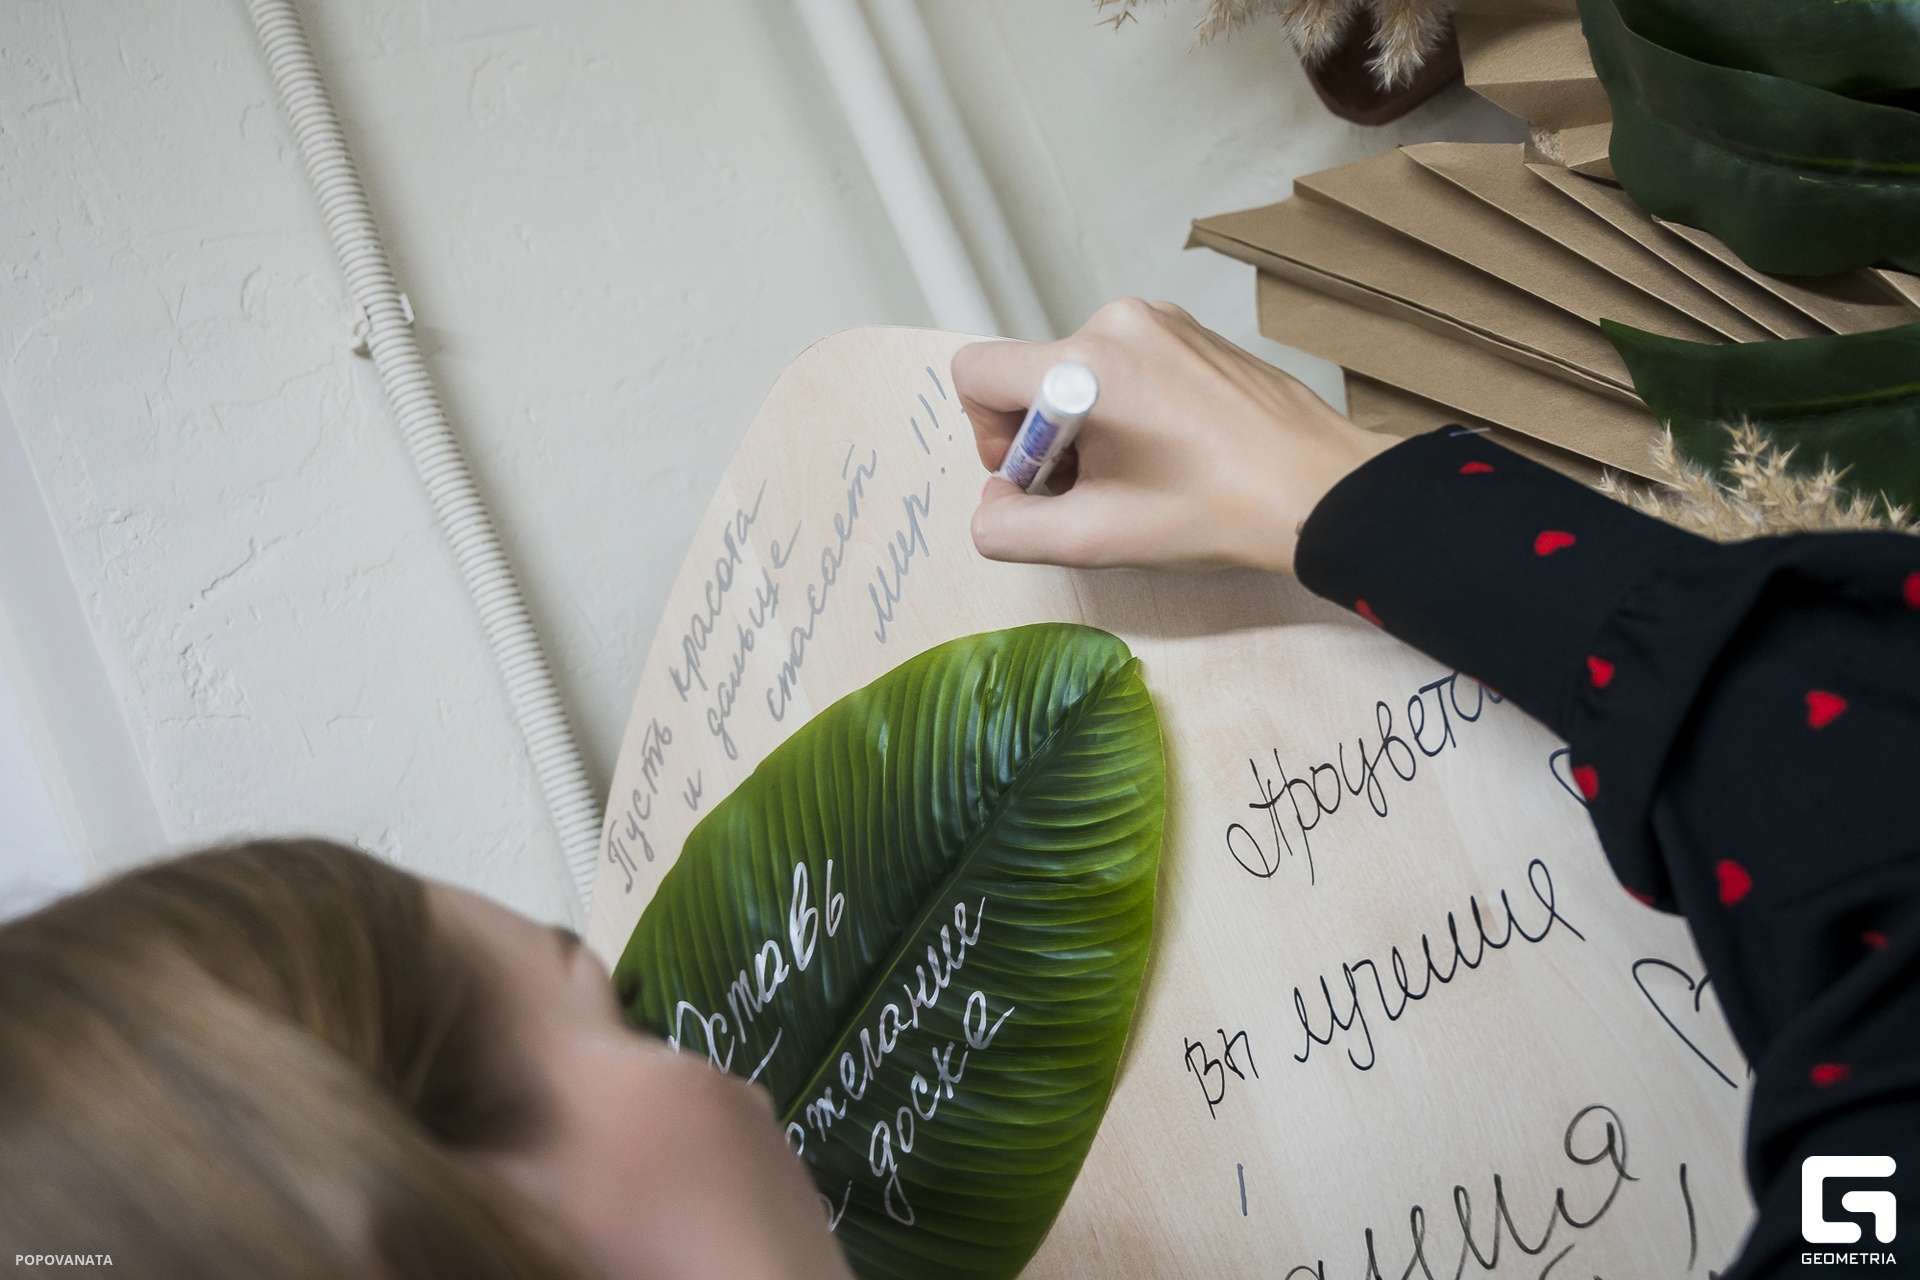 Пусть красота
и дальше
спасает
мир!!!
Оставь
пожелание
доске
Вы лучшие
POPOVANATA
GEOMETRIA